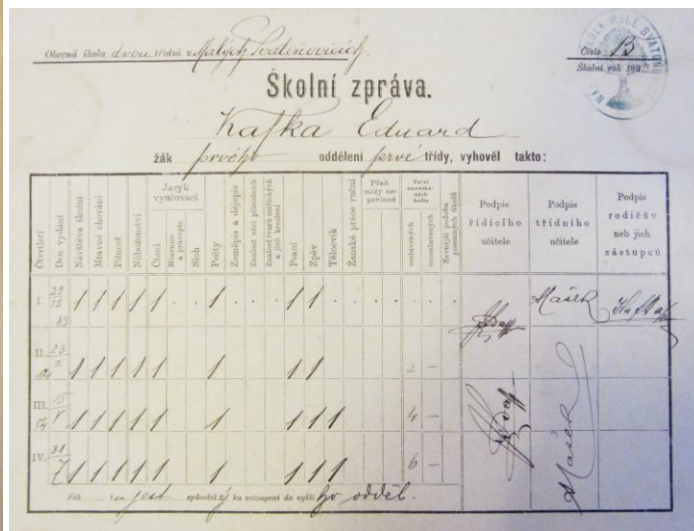 Obecná škola dvou třídní v Malých Svatoňovicích
Číslo 13
Školní rok 188
Školní zpráva.
Kafka Eduard
žák prvého oddělení prvé třídy, vyhověl takto:
Čtvrtletí Den vydání Návštěva školní Mravné chování Pilnost Náboženství Jazyk vyučovací Čtení Mluvnice a pravopis Sloh Počty Zeměpis a dějepis Znalost věcí přírodních Znalost tvarů měřických a jich kreslení Psaní Zpěv Tělocvik Ženské práce ruční Předměty nepovinné Počet zameškaných hodin omluvených neomluvených Zevnější podoba písemných úkolů Podpis řídicího učitele Podpis třídního učitele Podpis rodičův neb jich zástupců
I. 12 83 1 1 1 1 1 . . 1 . . . 1 1 . . . . . . Mašek
II. 23 2 84 1 1 1 1 1 1 1 1 2 –
III. 15 1 1 1 1 1 1 1 1 1 4 –
IV. 31 7 1 1 1 1 1 1 1 1 1 6 – Mašek
žák ten jest způsobilý ku vstoupení do vyšší ho odděl.